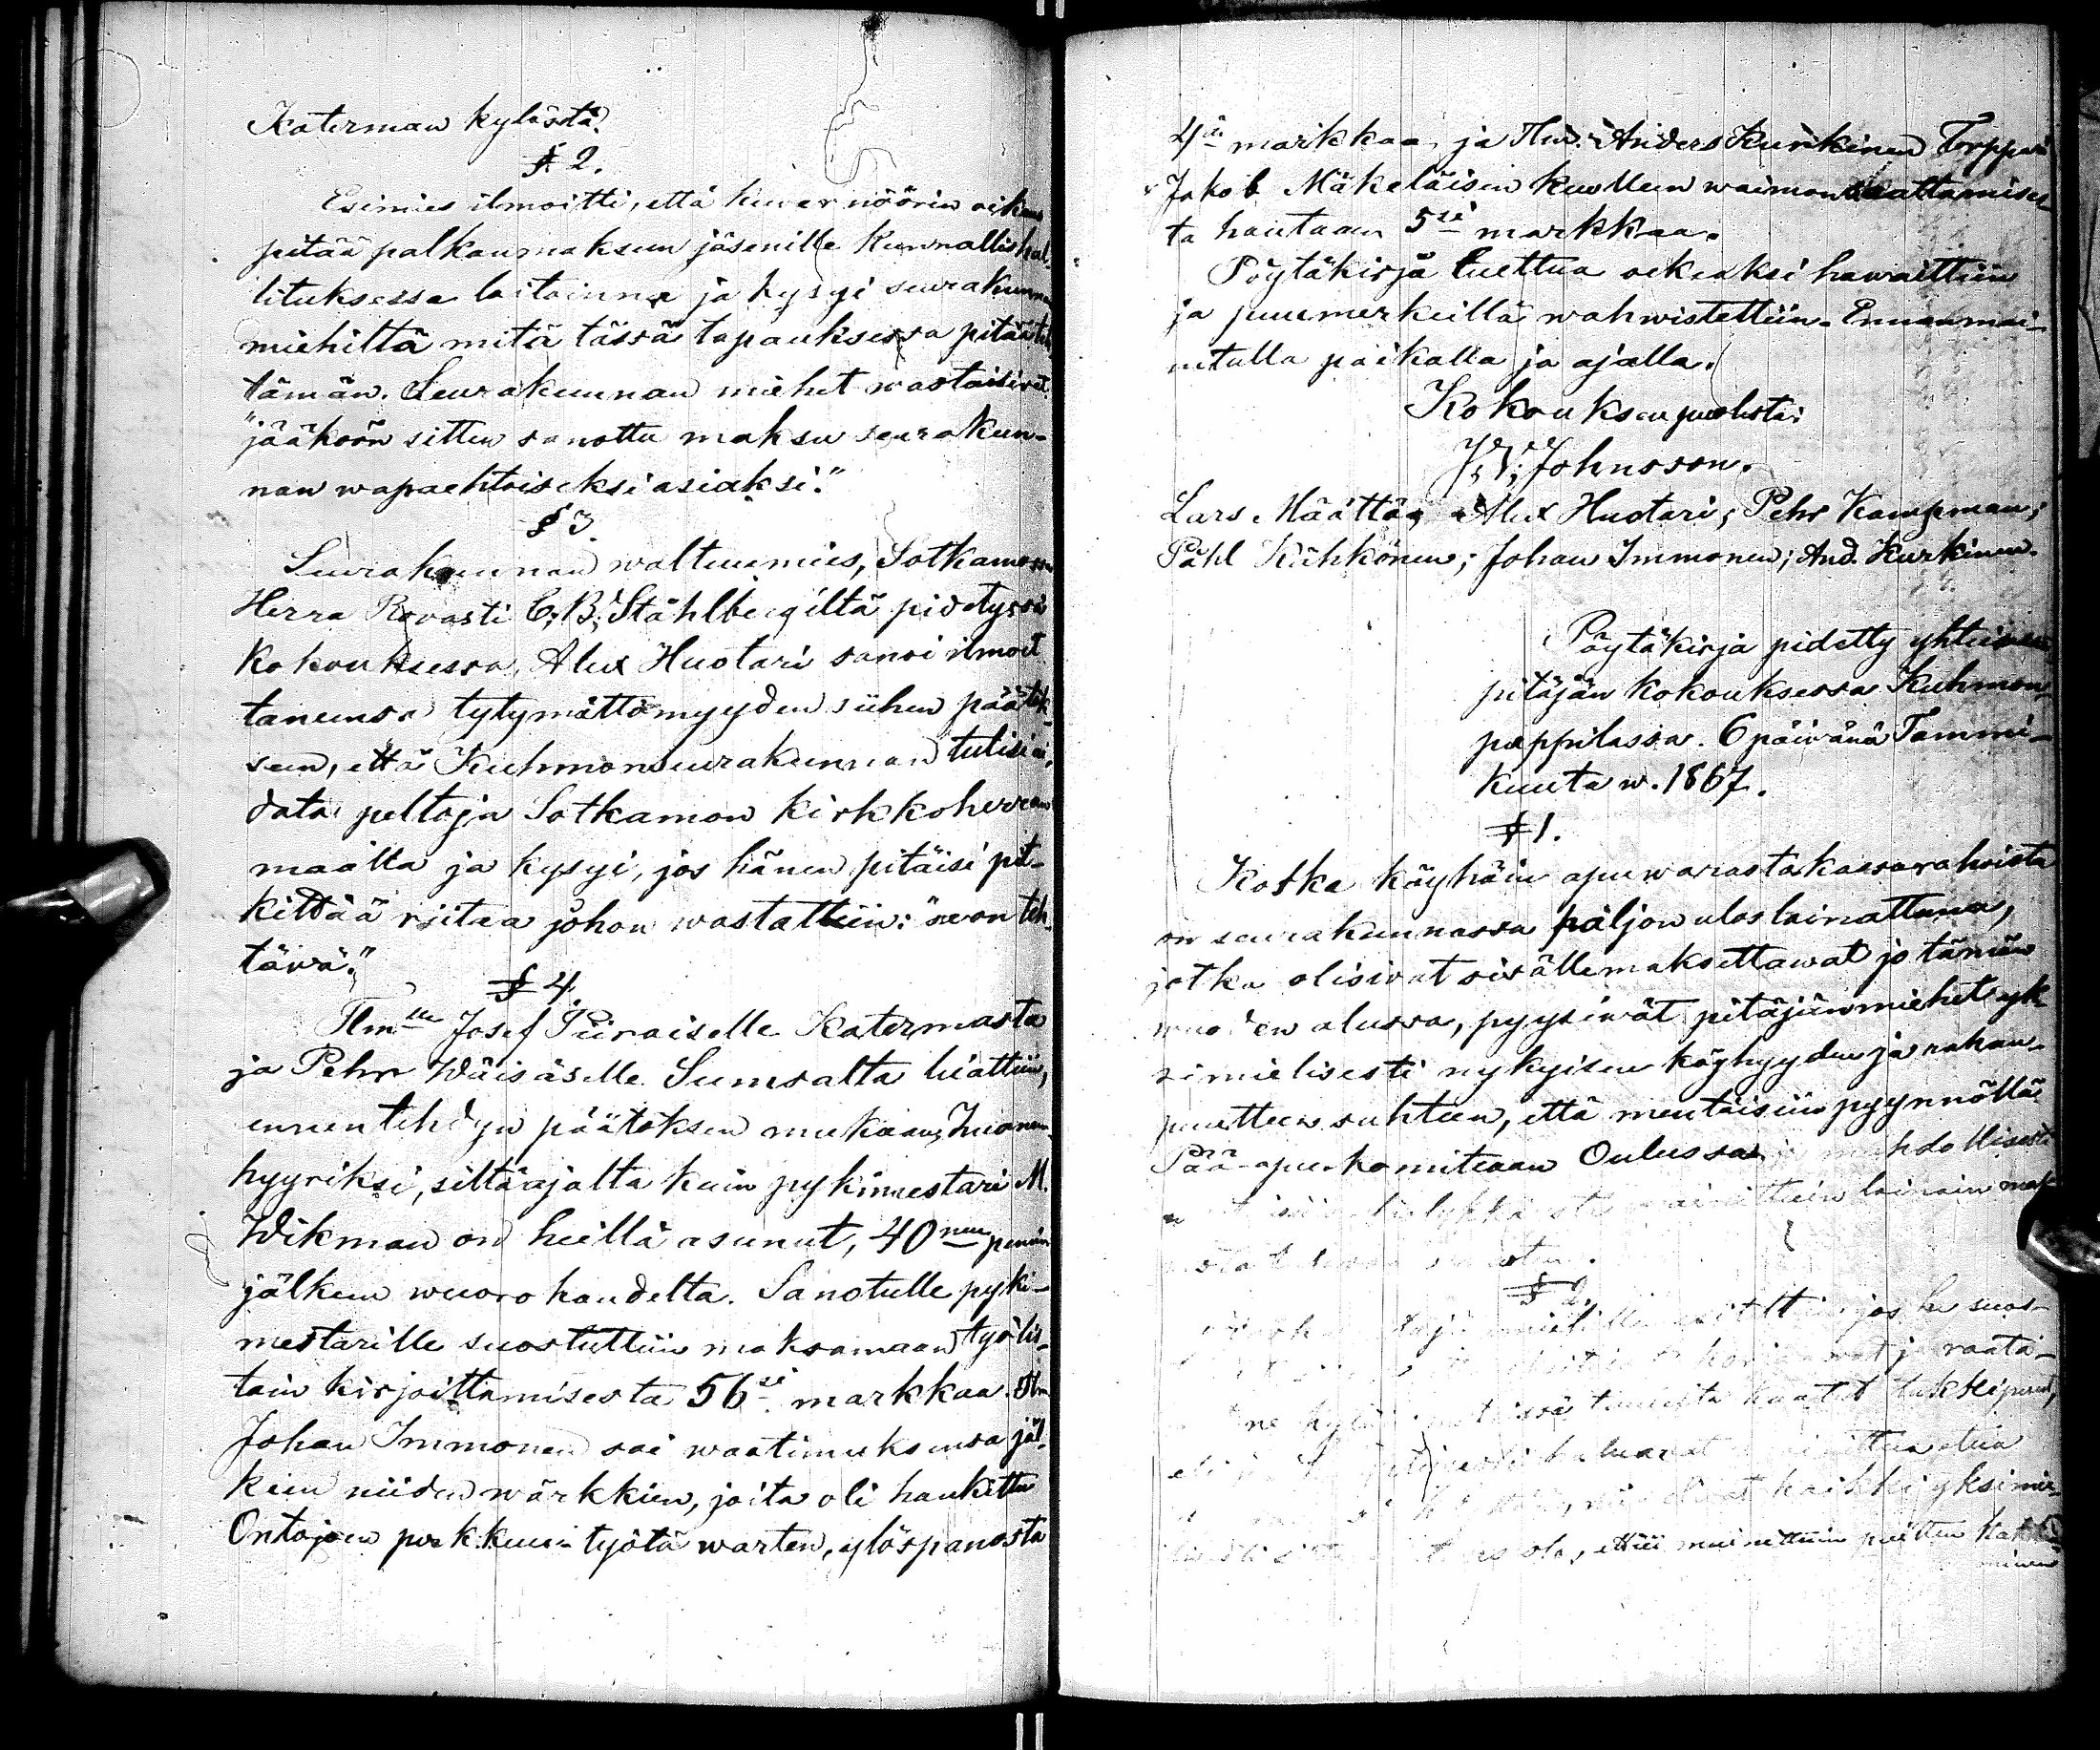 Katerman kylästä.
§ 2.
Esimies ilmoitti, että kuvernöörin oikeus
pitää palkanmaksun jäsenille kunnallishal-
lituksessa laitoinna ja kysyi seurakunnan
miehiltä mitä tässä tapauksessa pitää teh
tämän. Seurakunnan miehet wastaisivat:
"jääköön sitten sanottu maksu seurakun-
nan wapaehtoiseksi asiaksi."
§ 3.
Seurakunnan waltuumies, Sotkamossa
Herra Rovasti C; B; Ståhlbergiltä pidetyssä
kokouksessa, Alex Huotari sanoi ilmoit
taneensa tytymättömyyden siihen päätök-
seen, että Kuhmon seurakunnan tulisi ai,
data peltoja Sotkamon kirkkoherran
maalta ja kysyi, jos hänen pitäisi pit-
kittää riitaa johon wastattiin: "se on teh-
täwä."
§ 4.
Tlm lle Josef Piiraiselle Katermasta
ja Pehr Wäisäselle Sumsalta liiattiin,
ennen tehdyn päätöksen mukaan, huonen-
hyyriksi, siltä ajalta kuin pykimestari M.
Wikman on heillä asunut, 40 nen pennin
jälkeen wuorokaudelta. Sanotulle pyki-
mestarille suostuttiin maksamaan työlis-
tain kirjoittamisesta 56 si markkaa. Tlm
Johan Immonen sai waatimuksensa jäl-
keen niiden wärkkien, joita oli hankittu
Ontojoen perkkuu työtä warten, ylöspanosta
4 ä markkaa, ja Tlm. Anders Kurkinen Torppari
Jakob Mäkeläisen kuolleen waimon saattamises-
ta hautaan 5 si markkaa.
Pöytäkirja luettua oikeaksi hawaittiin
ja puumerkeillä wahwistettiin. Ennenmai-
nitulla paikalla ja ajalla.
Kokouksen puolesta:
J; W; Johnsson.
Lars Määttä; Alex Huotari; Pehr Kampman;
Påhl Kähkönen; Johan Immonen; And. Kurkinen.
Pöytäkirja pidetty yhteisessä
pitäjän kokouksessa Kuhmon
pappilassa. 6 päiwänä Tammi-
kuuta w. 1867.
§ 1.
Koska köyhäin apuwarastakassarahoista
on seurakunnassa paljon ulos lainattuna,
jotka olisiwat siwällemaksettawat jo tämän
wuoden alussa, pyysiwät pitäjänmiehet yk
simielisesti nykyisen köyhyyden ja rahan-
puutteen suhteen, että mentäisiin pyynnöllä
Pää-apu-komiteaan Oulussa mahdollisesta
lainain mak
§ 2.
jos he suos-
ja raata-
kaatut tukkipuut,
haluavat
kaikki yksimie-
että mainittuin puitten hakka
minen